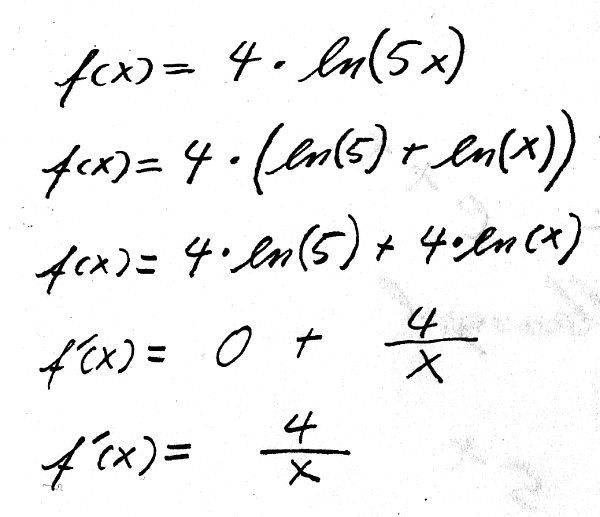 f(x) = 4 · ln(5x)
f(x) = 4 · (ln(5) + ln(x))
f(x) = 4 · ln(5) + 4 · ln(x)
f'(x) = 0 + 4/x
f'(x) = 4/x